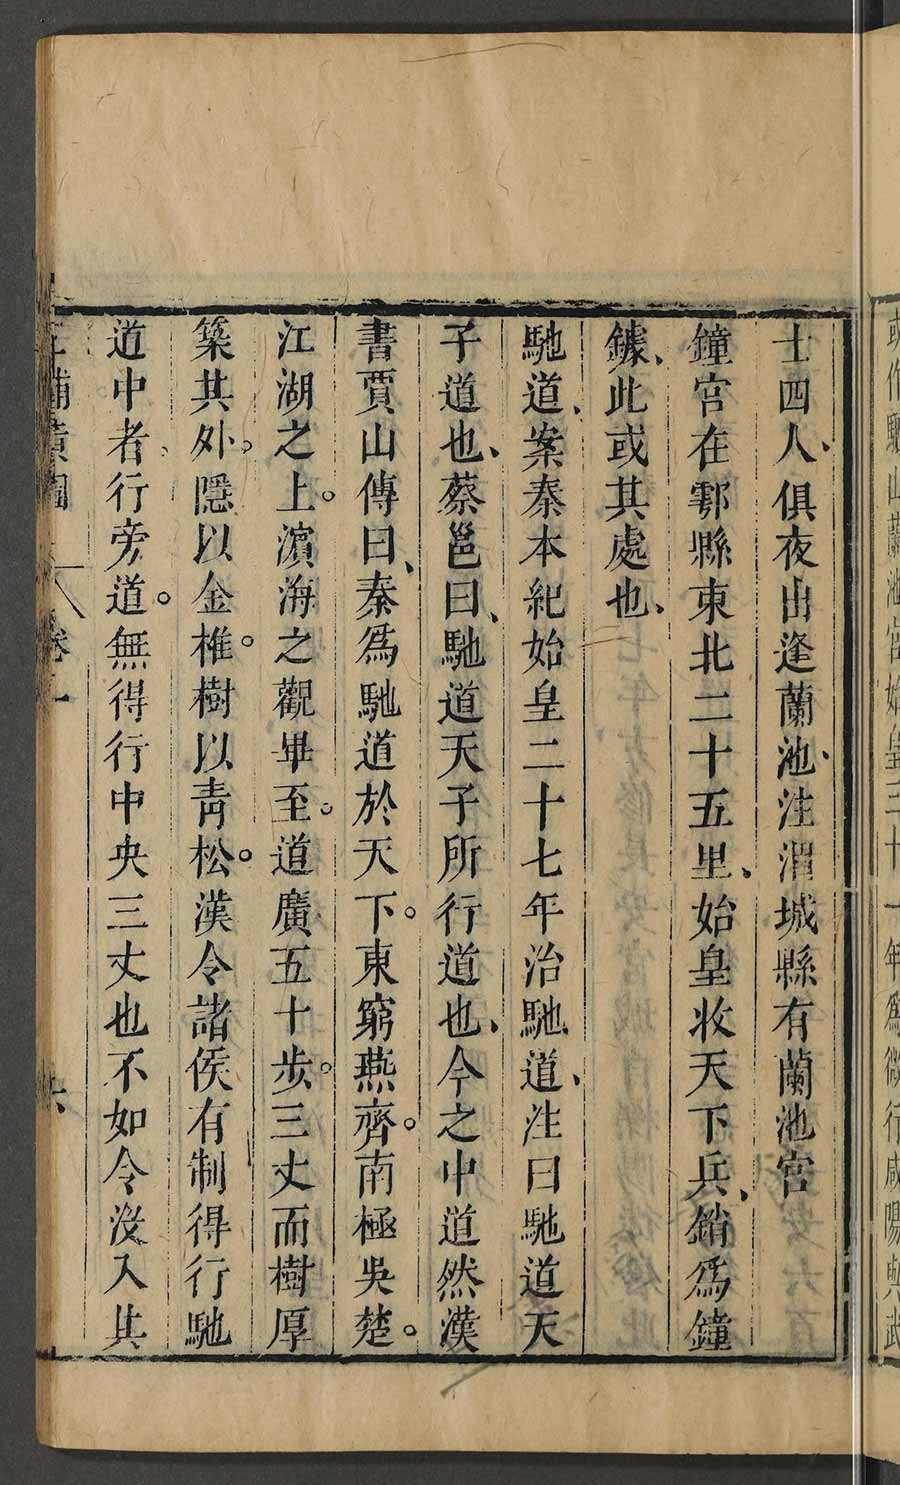 或作驪山蘭池宮始皇三十一年為微行咸陽與武
士四人、俱夜出逢蘭池、注渭城縣有蘭池宮
鐘宮在鄠縣東北二十五里、始皇收天下兵、銷爲鐘
鐻、此或其處也、
馳道、案秦本紀始皇二十七年治馳道、注曰馳道天
子道也、蔡邕曰、馳道天子所行道也、今之中道然漢
書賈山傳曰、秦爲馳道於天下。東窮燕齊。南極吳楚。
江湖之上。濵海之觀畢至。道廣五十步。三丈而樹厚
築其外。隱以金椎。樹以靑松。漢令諸侯有制得行馳
道中者、行旁道。無得行中央三丈也不如令沒入其
三輔黃圖 卷一 六